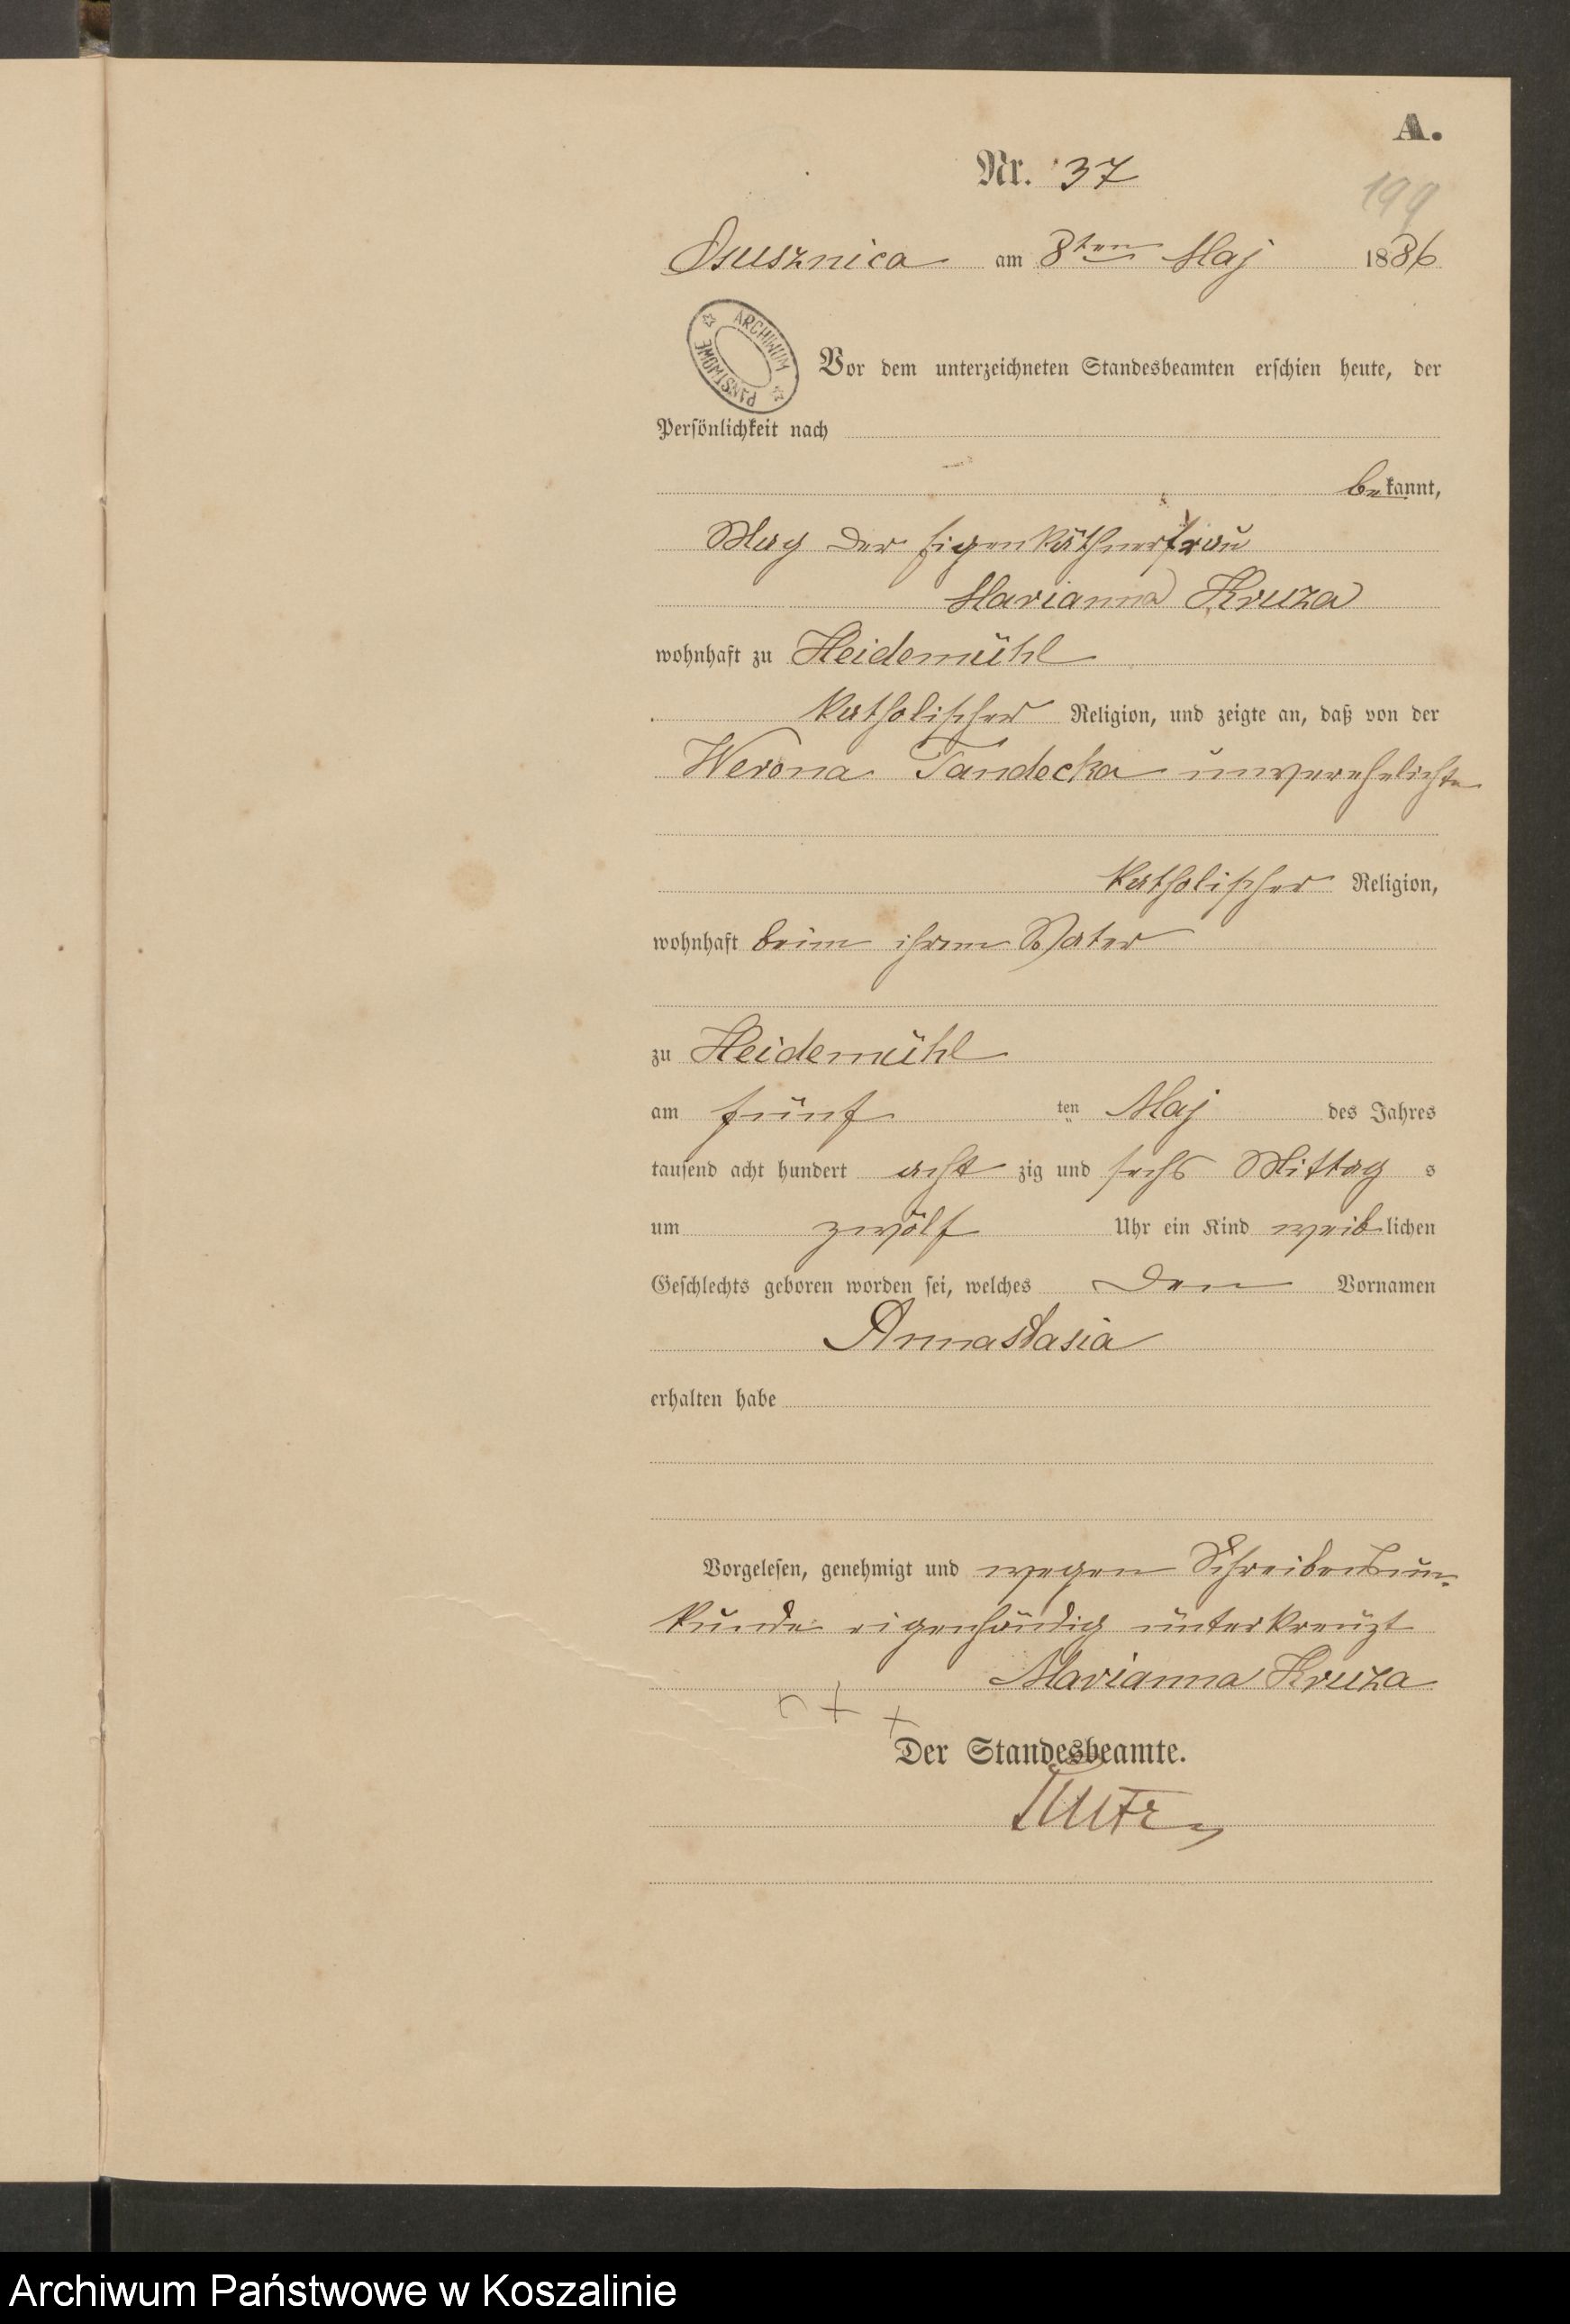 A.
Nr. 37
199
Osusznica am 8ten Maj 1886
ARCHIWUM PAŃSTWOWE
Vor dem unterzeichneten Standesbeamten erschien heute, der
Persönlichkeit nach
bekannt,
der Eigenkäthnerfrau
Marianna Kruza
wohnhaft zu Heidemühl
katholischer Religion, und zeigte an, daß von der
Werona Tandecka unverehelichte
katholischer Religion,
wohnhaft beim ihrem Vater
zu Heidemühl
am fünf ten Maj des Jahres
tausend acht hundert acht zig und sechs Mittag s
um zwölf Uhr ein Kind weiblichen
Geschlechts geboren worden sei, welches den Vornamen
Annastasia
erhalten habe
Vorgelesen, genehmigt und wegen Schreibensun-
kunde eigenhändig unterkreuzt
Marianna Kruza
+ + +
Der Standesbeamte.
Archiwum Państwowe w Koszalinie